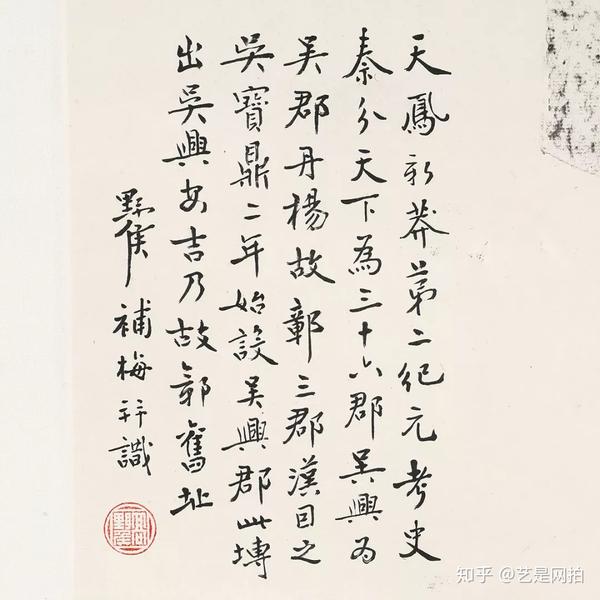 天鳳新莽第二紀元考史
秦分天下為三十六郡吳興為
吴郡丹楊故鄣三郡漢因之
吳寶鼎二年始設吳興郡此塼
出吳興安吉乃故鄣舊址
黟矦補梅并識
知乎 @艺是网拍